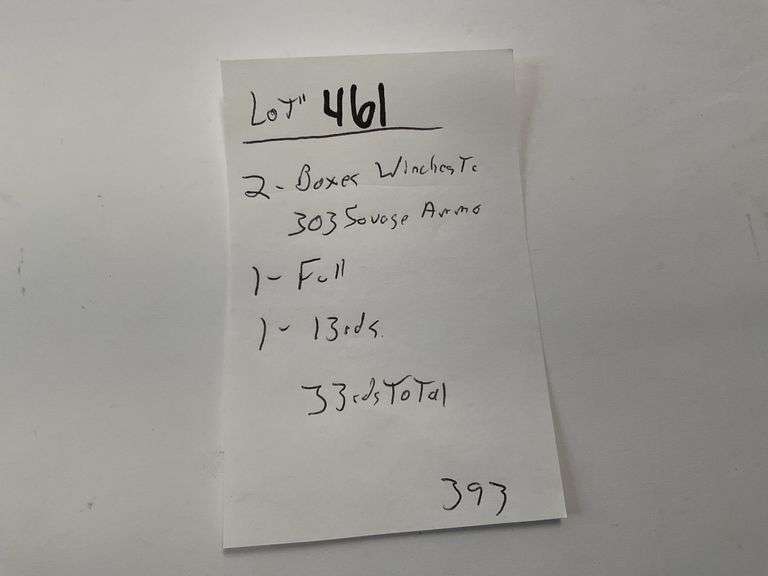 LoT" 461
2- Boxes WinchesTe
303 Savage Ammo
1- Full
1- 13rds.
33rdsToTal
393